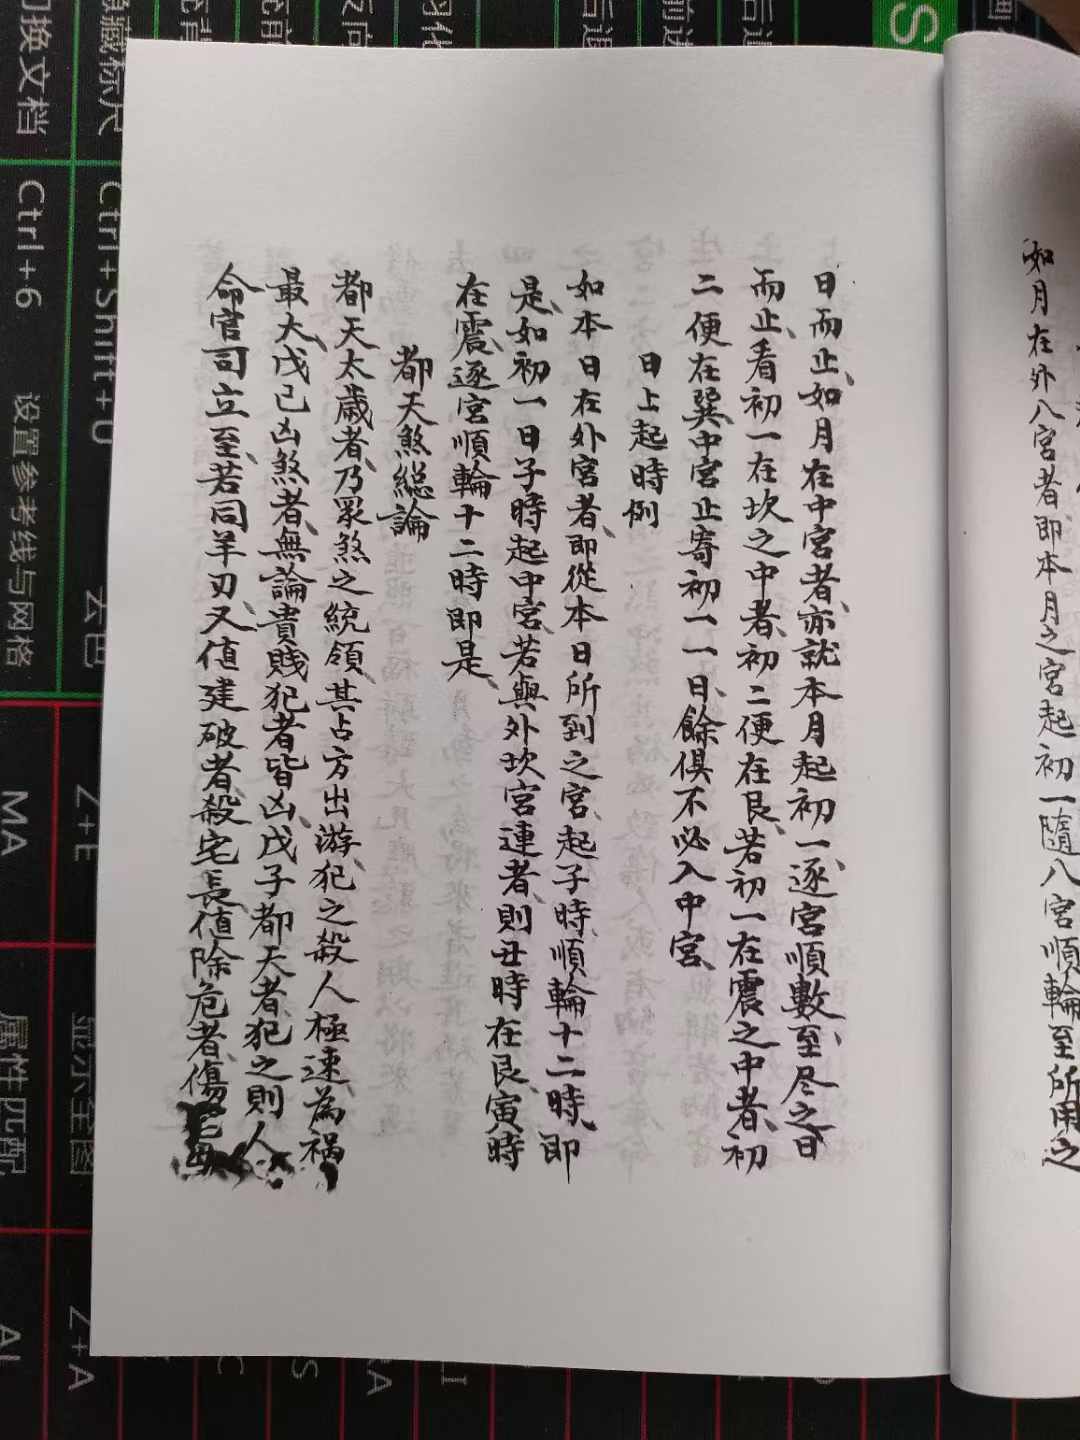 如月在外八宮者即本月之宮起初一隨八宮順輪至所用之
日而止、如月在中宮者、亦就本月起初一、逐宮順數至尽之日
而止、看初一在坎之中者、初二便在艮、若初一在震之中者、初
二便在巽、中宮止寄初一一日、餘俱不必入中宮、
日上起時例
如本日在外宮者、即從本日所到之宮、起子時、順輪十二時、即
是、如初一日子時起中宮、若與外坎宮連者、則丑時在艮、寅時
在震、逐宮順輪十二時即是、
都天煞總論
都天太歲者、乃眾煞之統領、其占方出游、犯之殺人極速、為禍
最大、戊己凶煞者、無論貴賤犯者皆凶、戊子都天者、犯之則人
命官司立至、若同羊刃、又值建破者、殺宅長、值除危者、傷宅母
切换文档
Ctrl+6
设置参考线与网格
MA
属性匹配
隐藏标尺
Ctrl+Shift+U
去色
Z+E
显示全图
Z+A
S